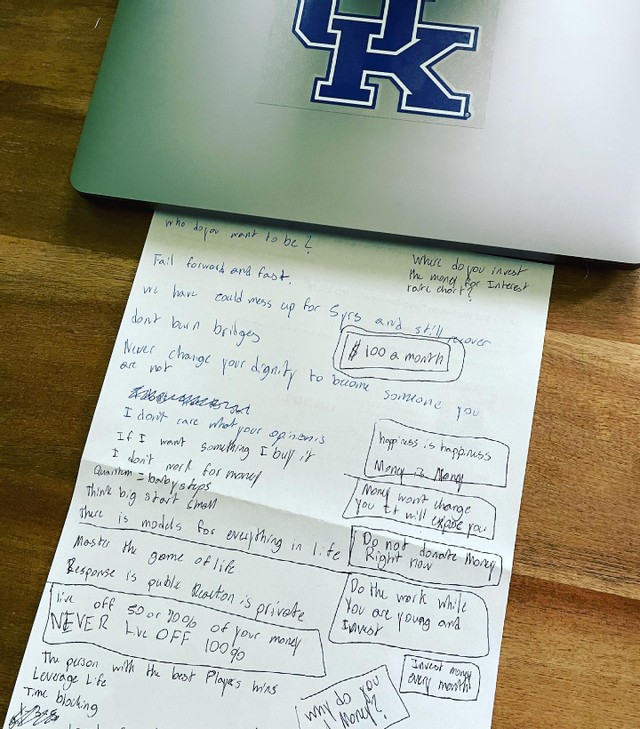 UK
who do you want to be?
Where do you invest
the money for Interest
rate chart?
Fail forward and fast.
we have could mess up for 5yrs and still recover
dont burn bridges
$ 100 a month
Never change your dignity to become someone you
are not
I don't care what your opinion is
If I want something I buy it
I don't work for money
Quantum = baby steps
Think big start small
There is models for everything in life
Master the game of life
Response is public Reaction is private
live off 50 or 70% of your money
NEVER Live OFF 100%
The person with the best Players wins
Leverage Life
Time blocking
happiness is happiness
Money is Money
Money won't change
you it will expose you
Do not donate money
Right now
Do the work while
You are young and
Invest
Invest money
every month
why do you
money?